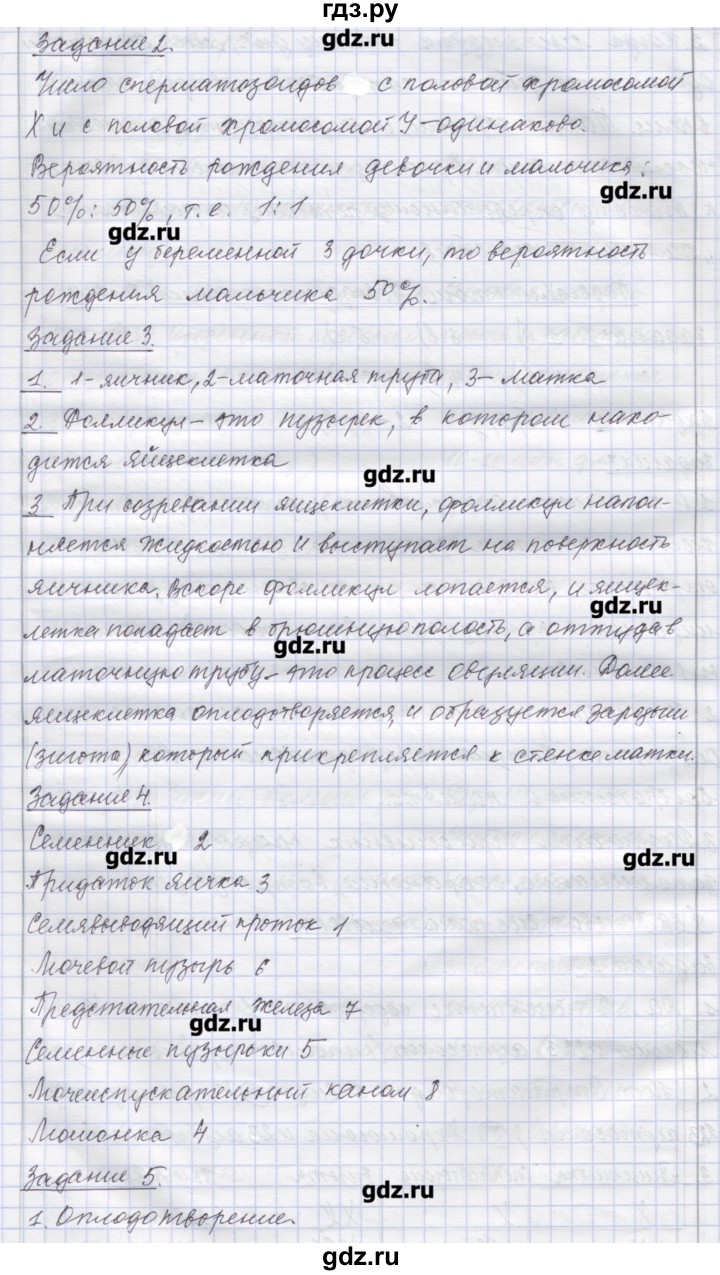 гдз.ру
Задание 2.
gdz.ru
Число сперматозоидов с половой хромосомой
X и с половой хромосомой У - одинаково.
Вероятность рождения девочки и мальчика:
gdz.ru
50%: 50%, т.е. 1:1
gdz.ru
Если у беременной 3 дочки, то вероятность
рождения мальчика 50%.
Задание 3.
1. 1- яичник, 2-маточная труба, 3- матка
2. Фолликул - это пузырек, в котором нахо-
дится яйцеклетка
gdz.ru
3 При созревании яйцеклетки, фолликул напол-
няется жидкостью и выступает на поверхность
яичника. Вскоре фолликул лопается, и яйцек-
gdz.ru
летка попадает в брюшную полость, а оттуда в
gdz.ru
маточную трубу - это процесс овуляции. Далее
яйцеклетка оплодотворяется, и образуется зародыш
(зигота), который прикрепляется к стенке матки.
Задание 4.
Семенник 2
gdz.ru
gdz.ru
Придаток яичка 3
Семявыводящий проток 1
Мочевой пузырь 6
Предстательная железа 7
gdz.ru
Семенные пузырьки 5
Мочеиспускательный канал 8
Мошонка 4
Задание 5.
gdz.ru
1. Оплодотворение.
gdz.ru